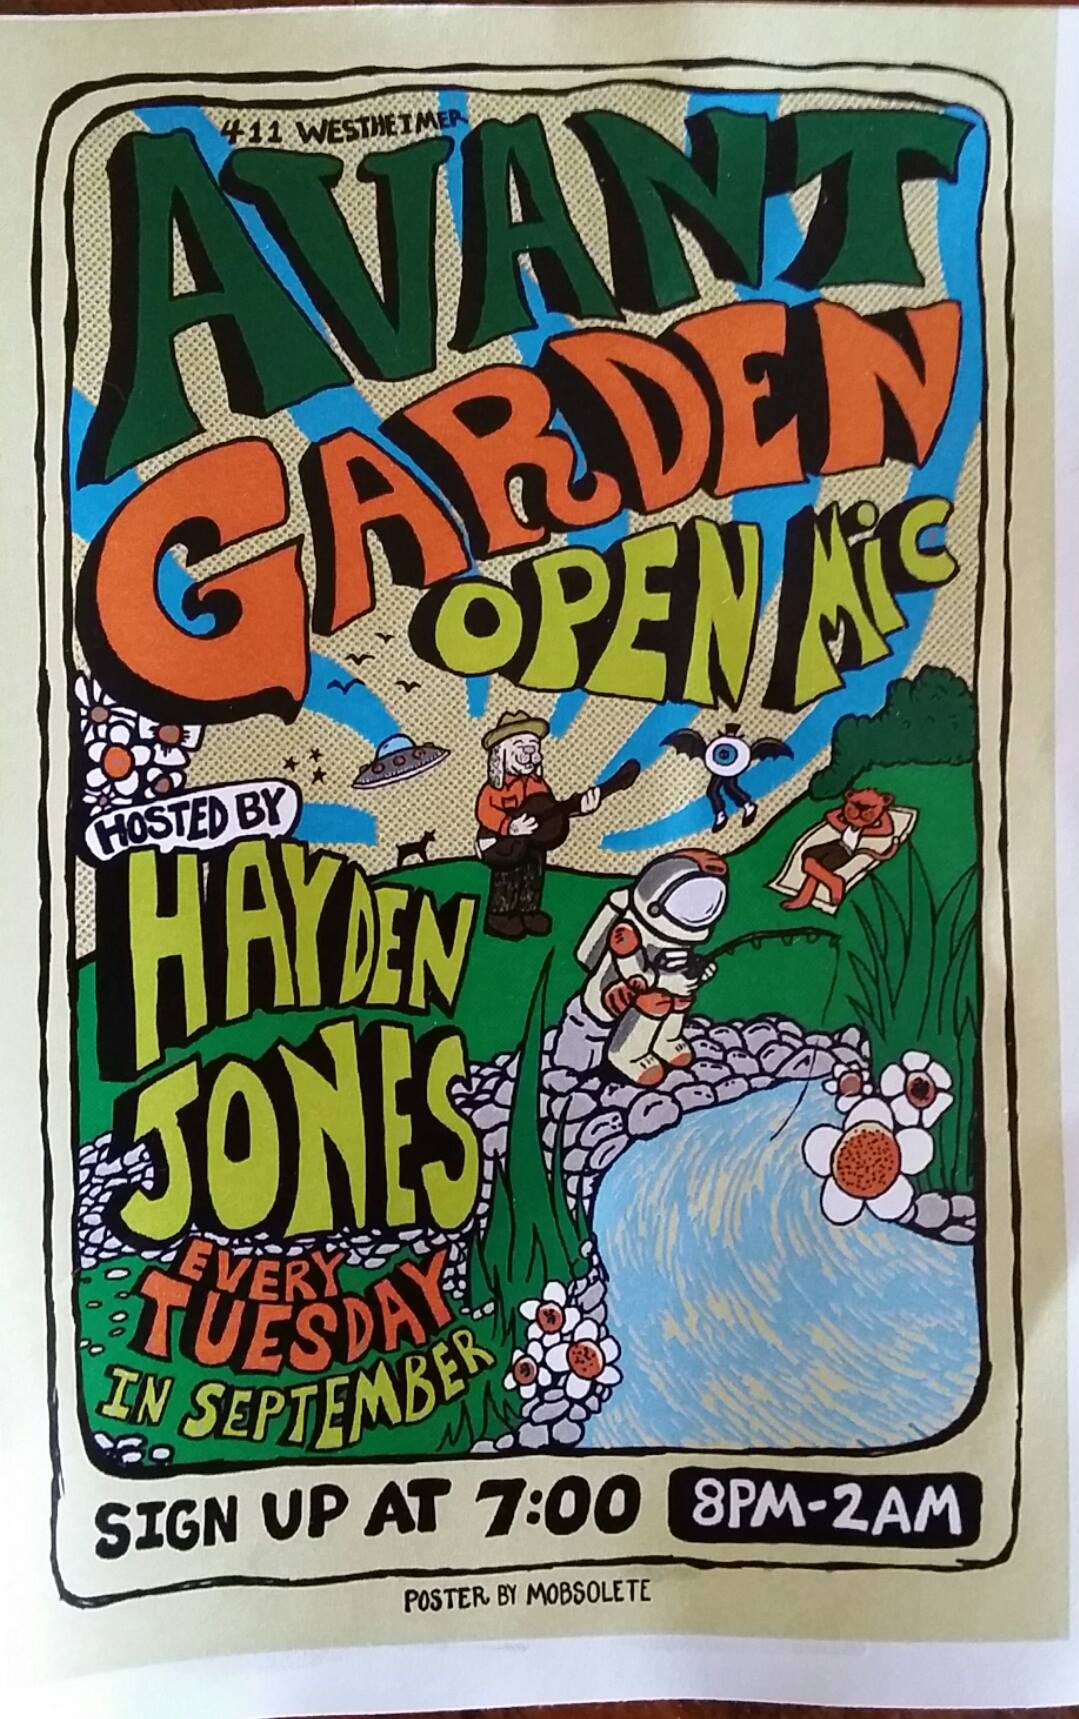 411 WESTHEIMER
AVANT
GARDEN
OPEN MiC
HOSTED BY
HAYDEN
JONES
EVERY
TUESDAY
IN SEPTEMBER
SIGN UP AT 7:00 8PM-2AM
POSTER BY MOBSOLETE